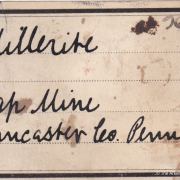 illerite
ap Mine
ancaster Co. Penn